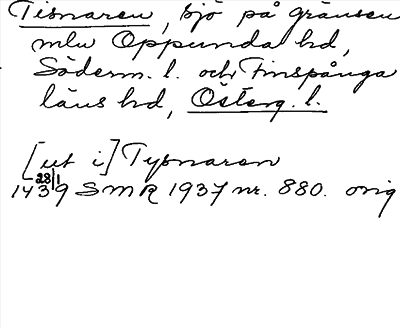 Tisnaren, sjö på gränsen
mlu Oppunda hd,
Söderm. l. och Finspånga
läns hd, Österg. l.
[ut i] Tysnaren
14 28/1 39 SMR 1937 nr. 880. orig